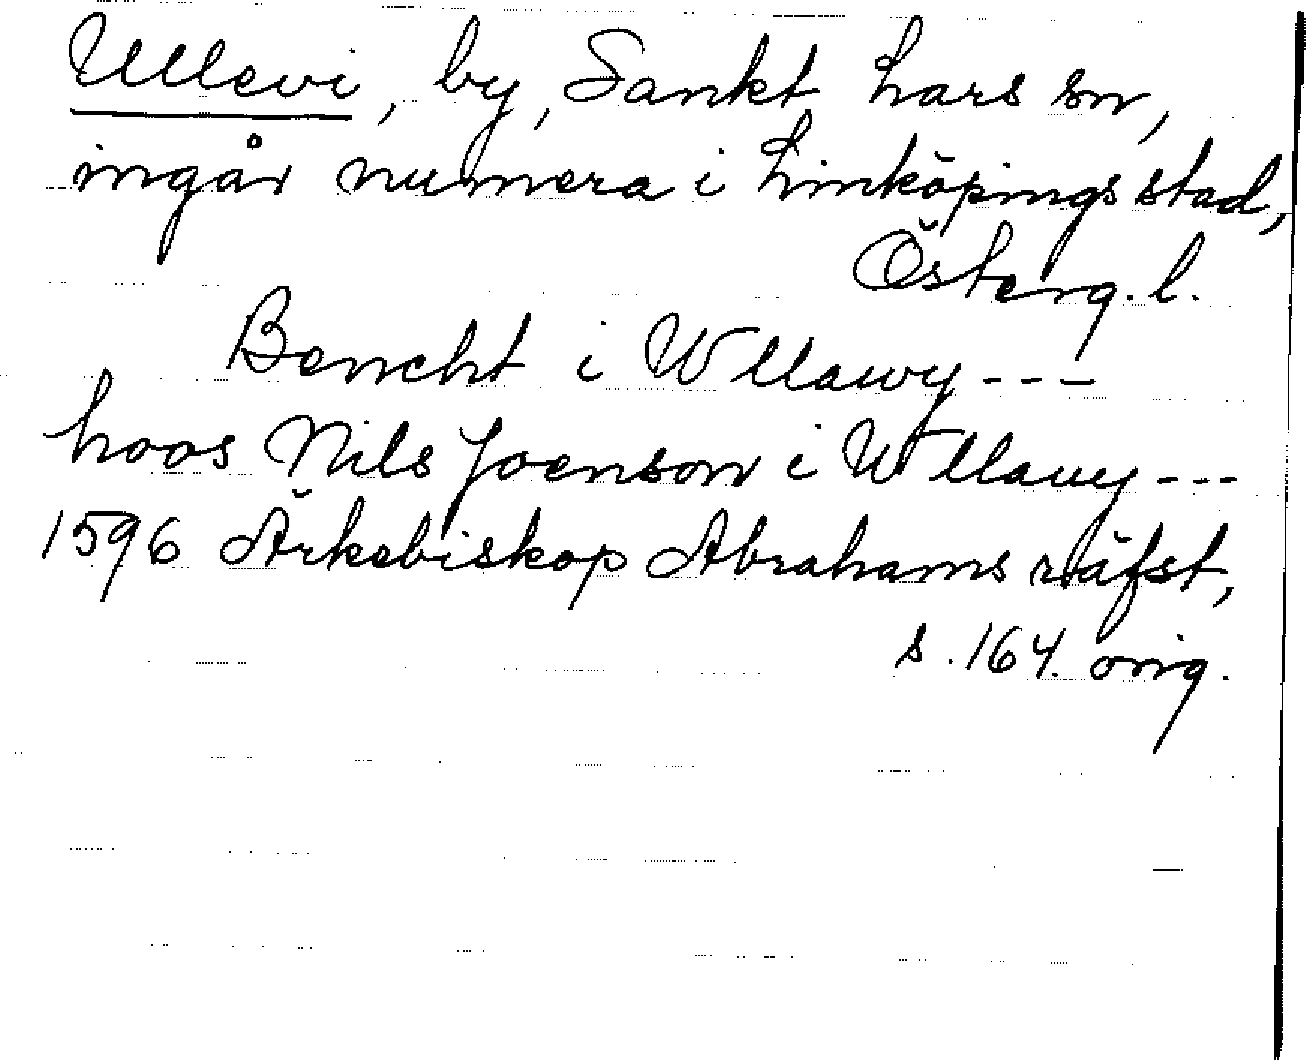 Ullevi, by, Sankt Lars sn,
ingår numera i Linköpings stad,
Österg. l.
Bencht i Wllawy ---
hoos Nils Joenson i Wllauy ---
1596 Ärkebiskop Abrahams räfst,
s. 164. orig.